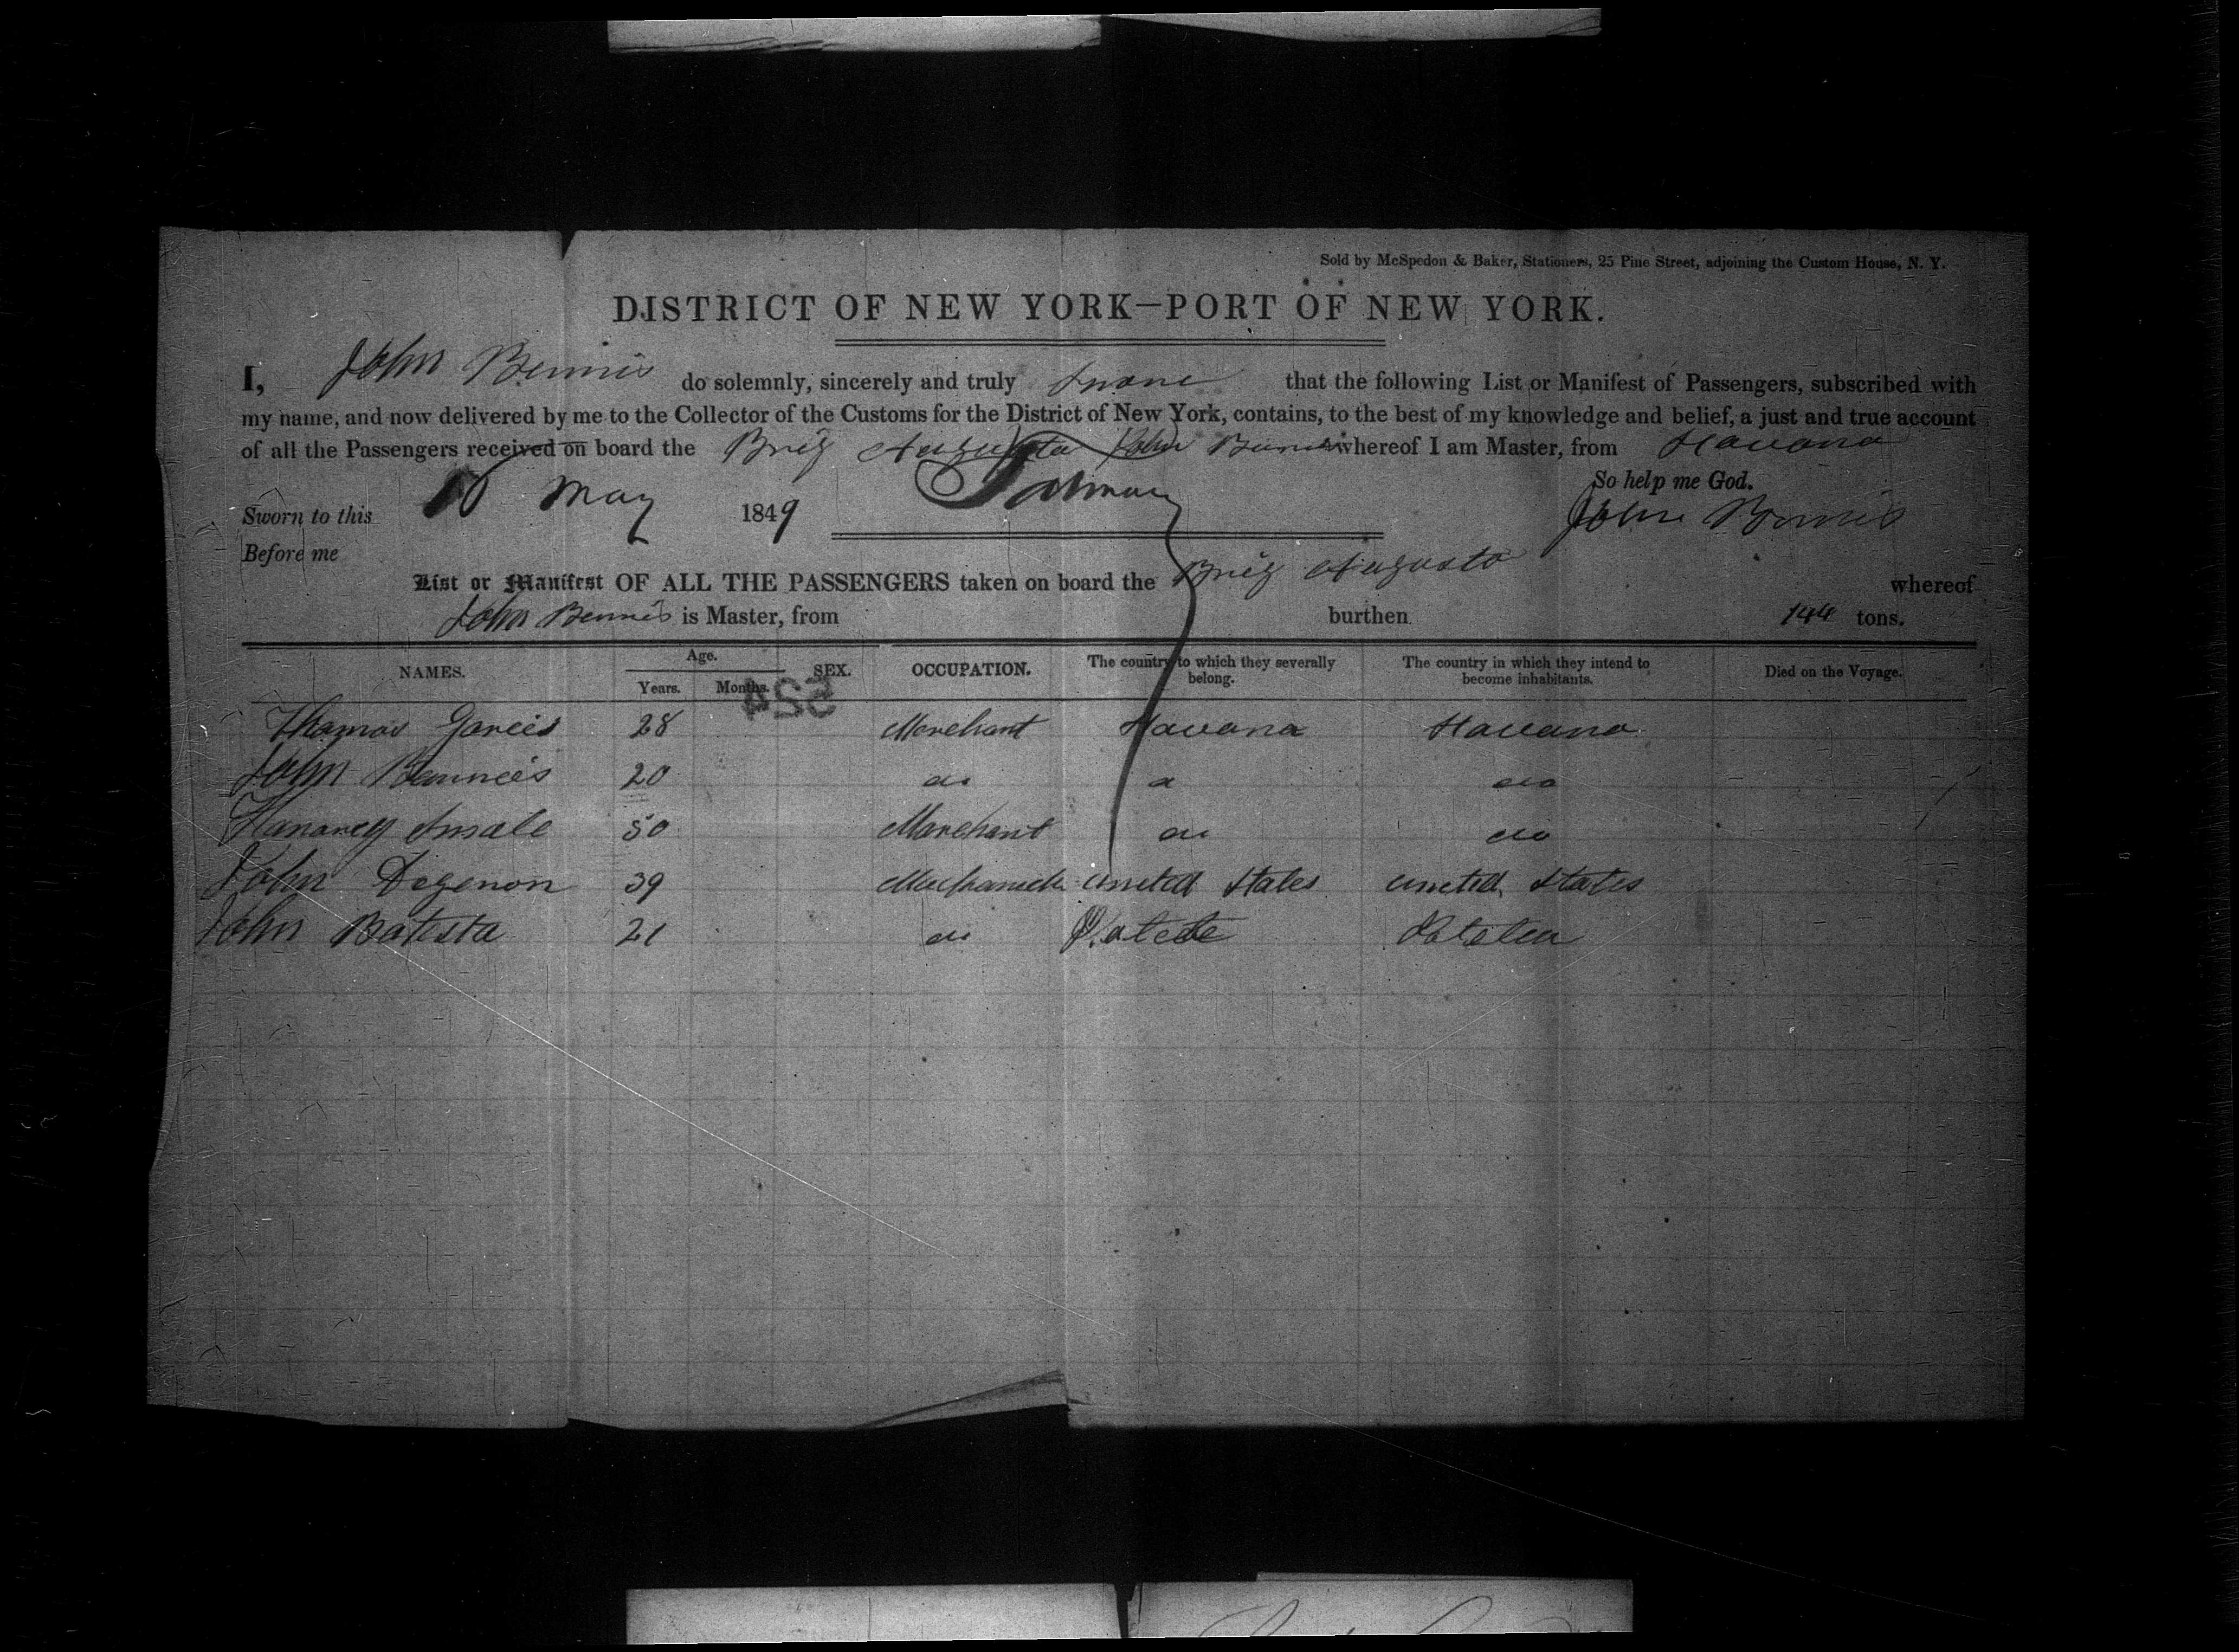 Sold by McSpedon & Baker, Stationers, 25 Pine Street, adjoining the Custom House, N. Y.
DISTRICT OF NEW YORK—PORT OF NEW YORK.
I, John Bennis do solemnly, sincerely and truly that the following List or Manifest of Passengers, subscribed with
my name, and now delivered by me to the Collector of the Customs for the District of New York, contains, to the best of my knowledge and belief, a just and true account
of all the Passengers received on board the Brig Augusta John Bennis whereof I am Master, from Havana
So help me God.
Sworn to this May 1849 John Bennis
Before me
List or Manifest OF ALL THE PASSENGERS taken on board the Brig Augusta whereof
John Bennis is Master, from burthen 144 tons.
NAMES. Age. Years. Months. SEX. OCCUPATION. The country to which they severally belong. The country in which they intend to become inhabitants. Died on the Voyage.
524
Thomas Garcis 28 Merchant Havana Havana
John Bennies 20 do do
50 Marchant do do
John Degenon 39 united States united States
John Batista 21 do